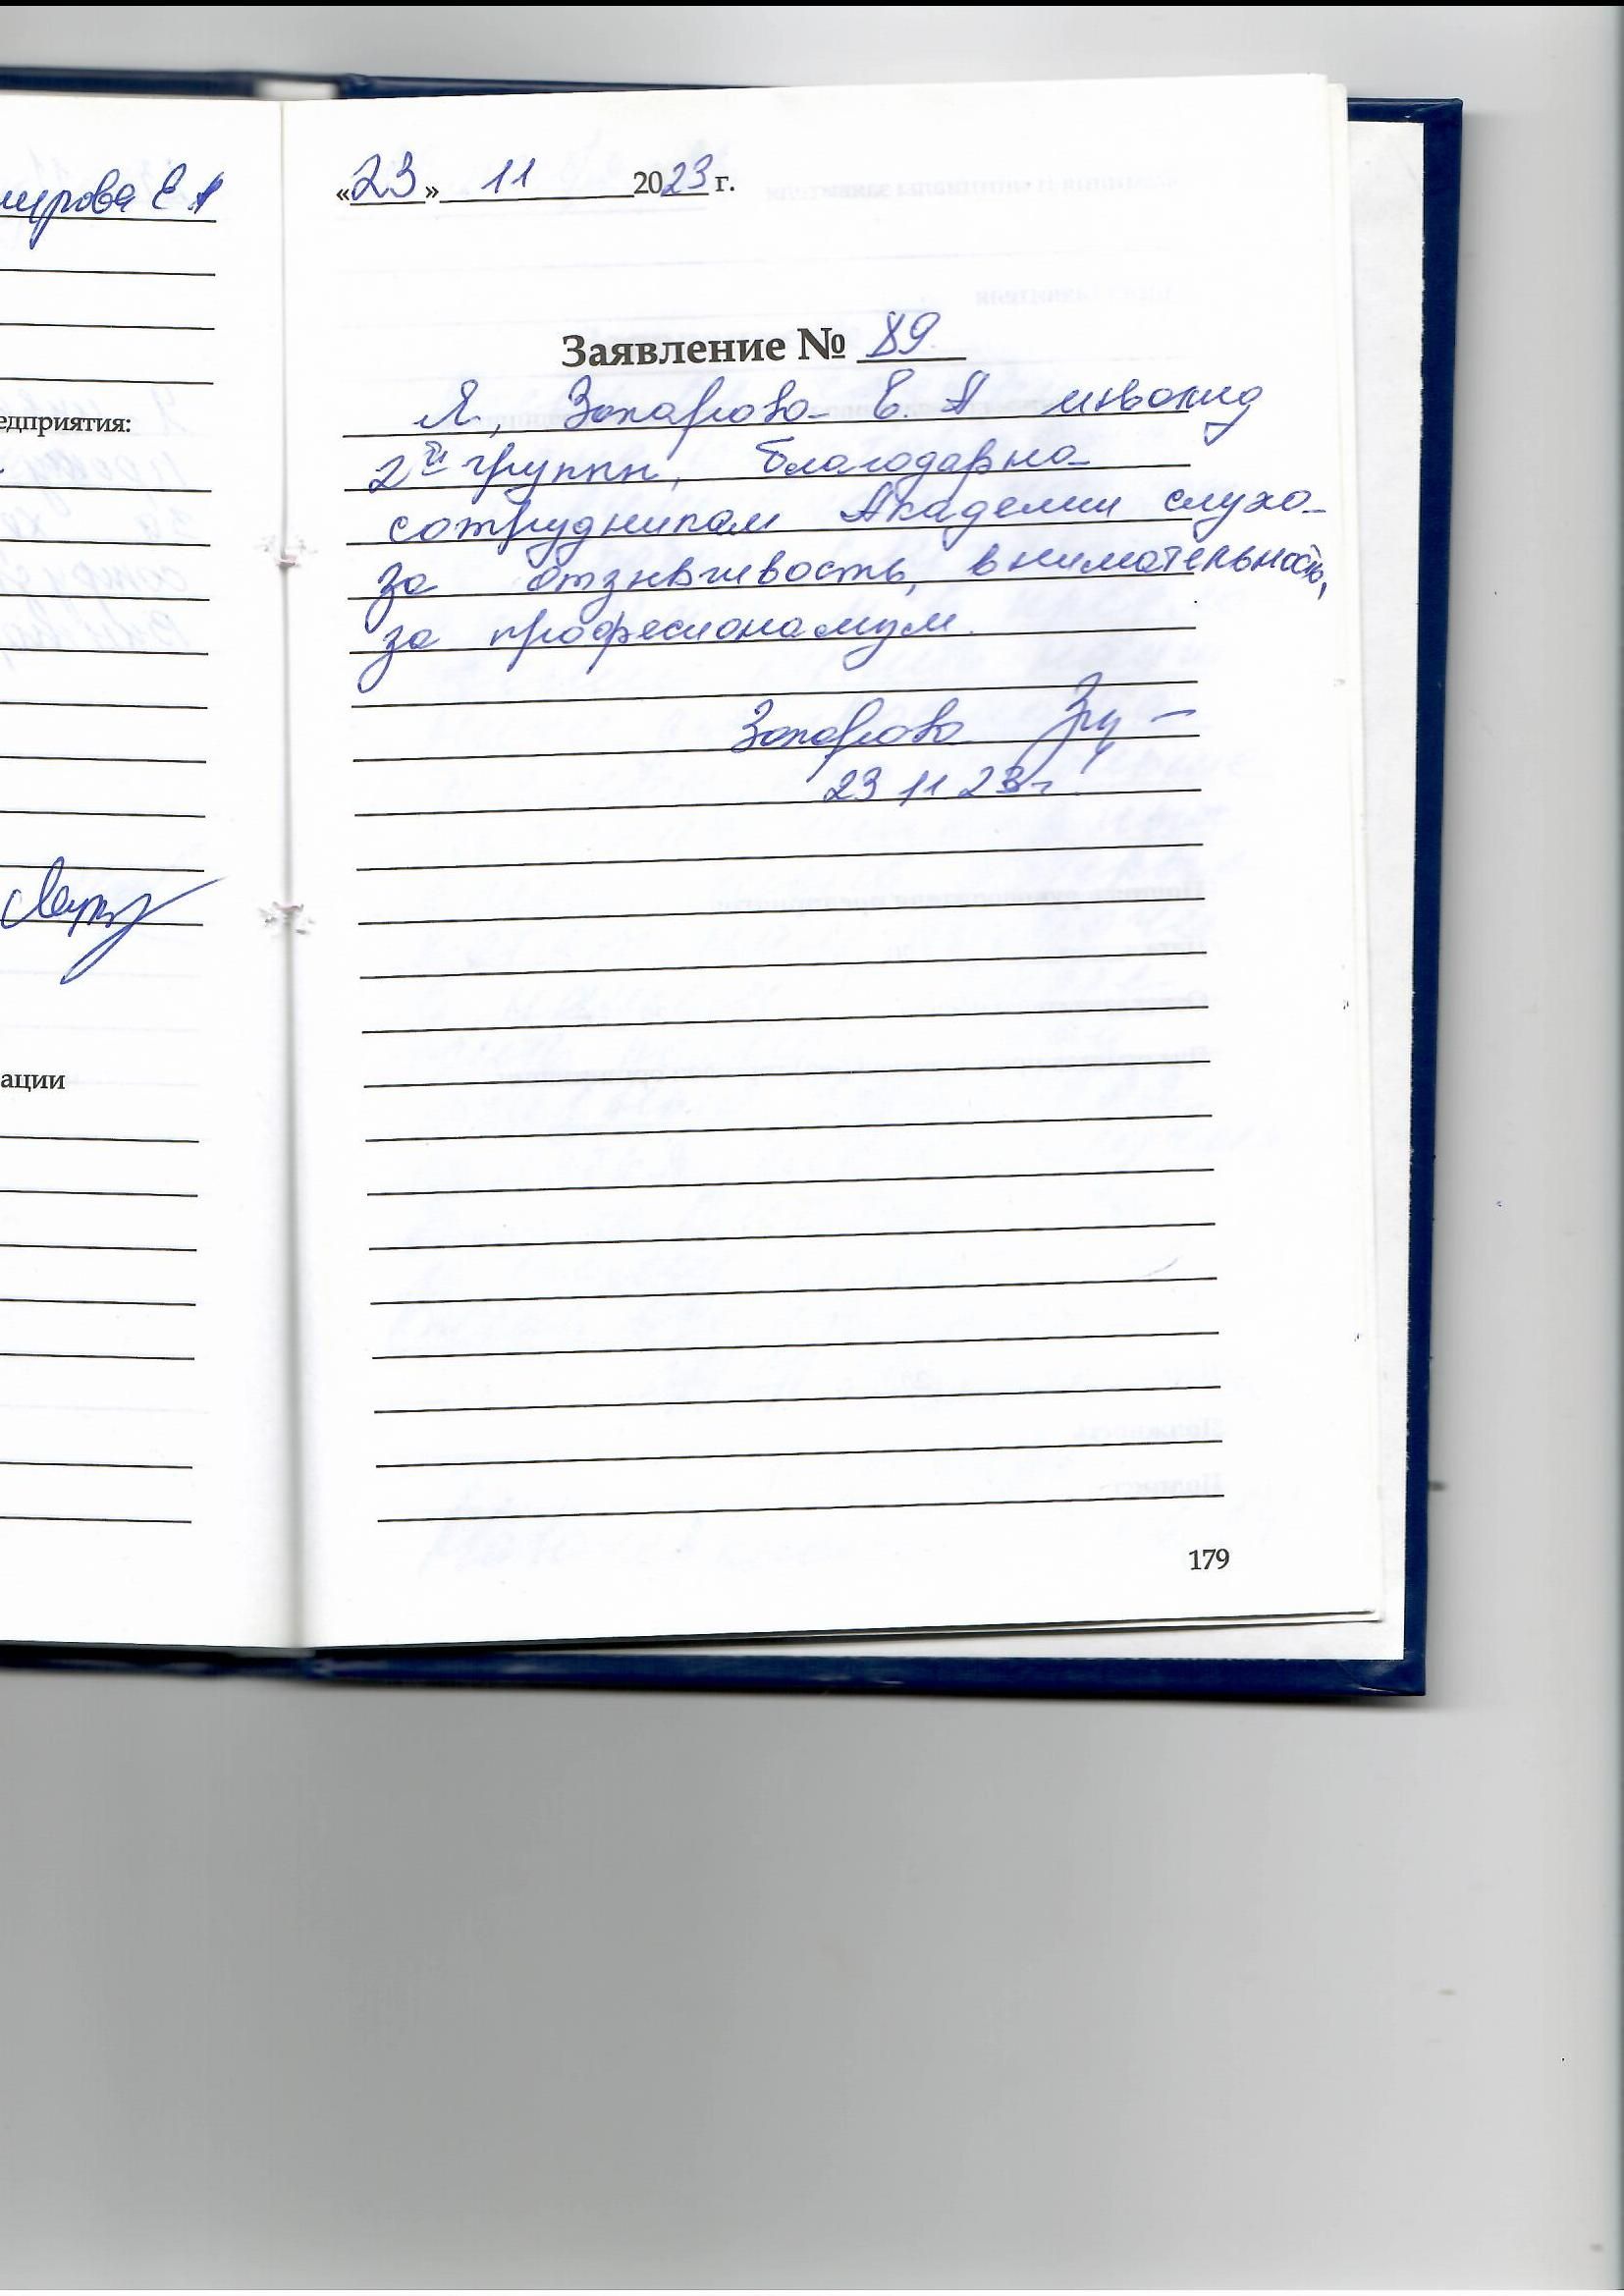 «23» 11 2023 г.
Заявление № 89
Я, Захарова Е. А инвалид
2й группы, благодарна
сотрудникам Академии слуха
за отзывчивость, внимательность,
за професионализм.
Захарова
23 11 23г.
179
Е А
едприятия:
ации